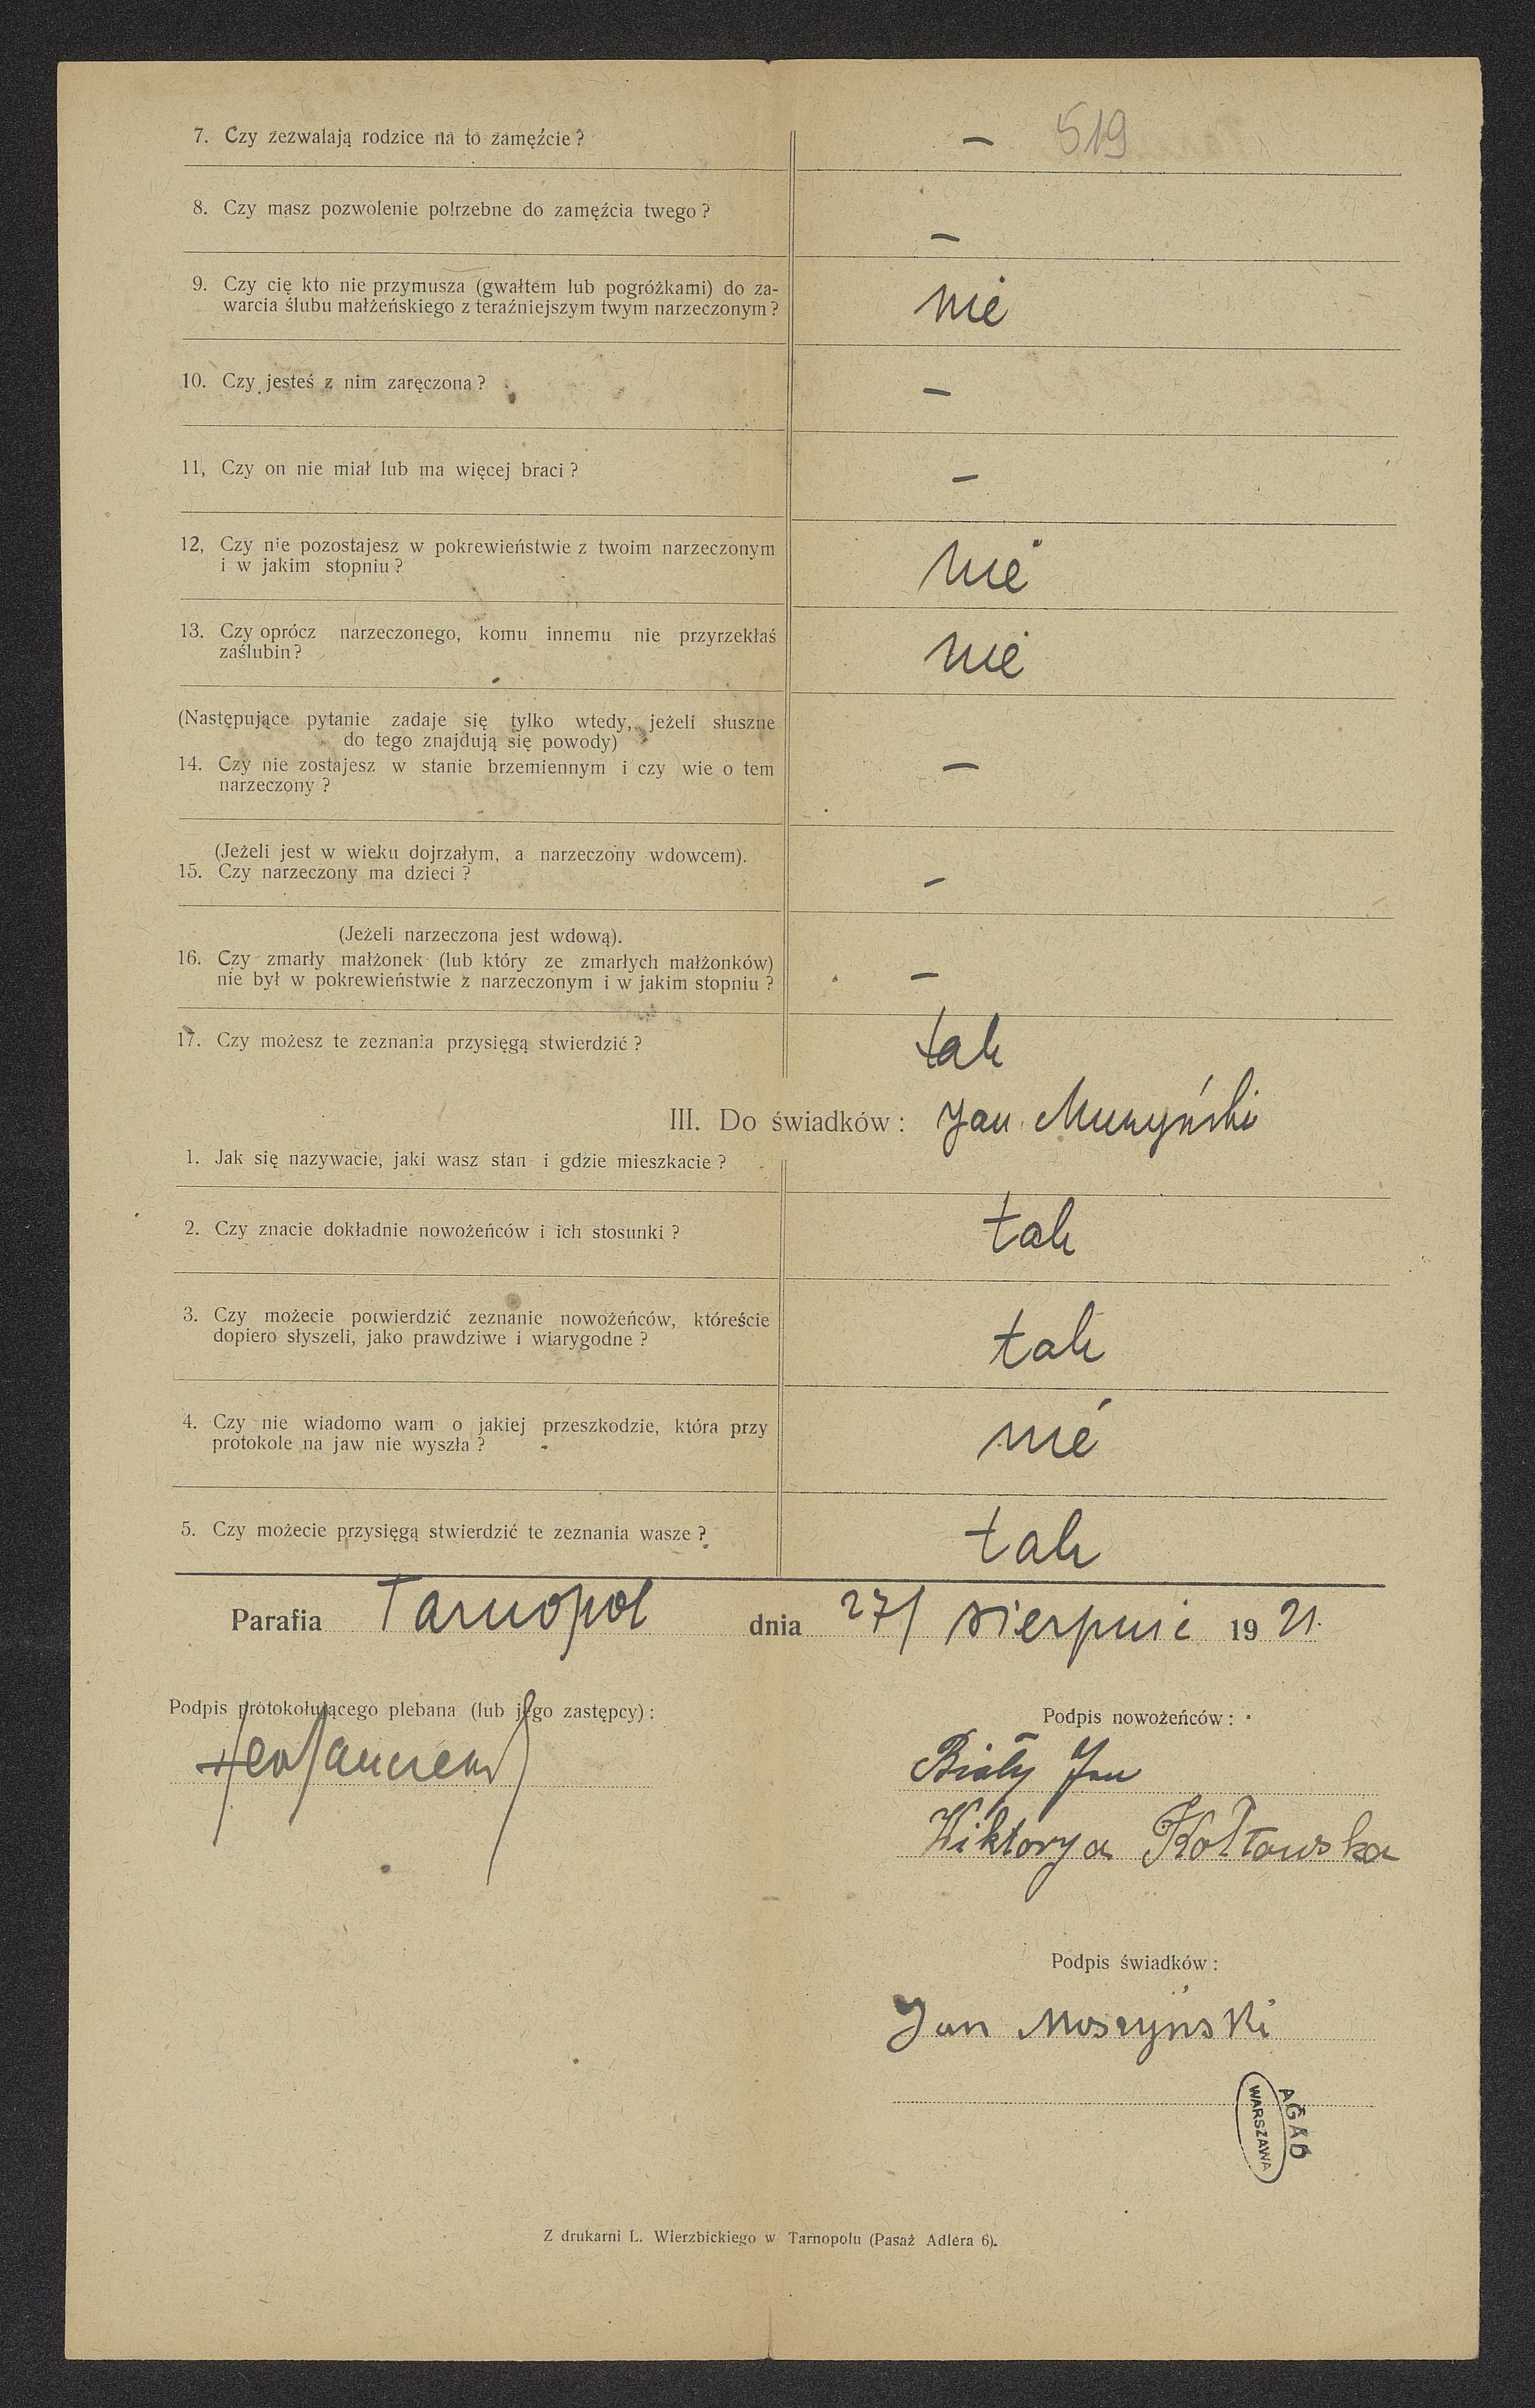 519
7. Czy zezwalają rodzice na to zamęźcie? —
8. Czy masz pozwolenie potrzebne do zamęźcia twego? —
9. Czy cię kto nie przymusza (gwałtem lub pogróżkami) do za-
warcia ślubu małżeńskiego z teraźniejszym twym narzeczonym? nie
10. Czy jesteś z nim zaręczona? —
11, Czy on nie miał lub ma więcej braci? —
12, Czy nie pozostajesz w pokrewieństwie z twoim narzeczonym
i w jakim stopniu? nie
13. Czy oprócz narzeczonego, komu innemu nie przyrzekłaś
zaślubin? nie
(Następujące pytanie zadaje się tylko wtedy, jeżeli słuszne
do tego znajdują się powody)
14. Czy nie zostajesz w stanie brzemiennym i czy wie o tem —
narzeczony?
(Jeżeli jest w wieku dojrzałym, a narzeczony wdowcem).
15. Czy narzeczony ma dzieci? —
(Jeżeli narzeczona jest wdową).
16. Czy zmarły małżonek (lub który ze zmarłych małżonków)
nie był w pokrewieństwie z narzeczonym i w jakim stopniu? —
17. Czy możesz te zeznania przysięgą stwierdzić? tak
III. Do świadków: Jan
1. Jak się nazywacie, jaki wasz stan i gdzie mieszkacie?
2. Czy znacie dokładnie nowożeńców i ich stosunki? tak
3. Czy możecie potwierdzić zeznanie nowożeńców, któreście
dopiero słyszeli, jako prawdziwe i wiarygodne? tak
4. Czy nie wiadomo wam o jakiej przeszkodzie, która przy
protokole na jaw nie wyszła? nie
5. Czy możecie przysięgą stwierdzić te zeznania wasze? tak
Parafia Tarnopol dnia 27/ sierpnie 19 21.
Podpis protokołującego plebana (lub jego zastępcy):
Podpis nowożeńców:
Biały Jan
Wiktorya Kołtowska
Podpis świadków:
Jan Moszyński
AGAD
WARSZAWA
Z drukarni L. Wierzbickiego w Tarnopolu (Pasaż Adlera 6).